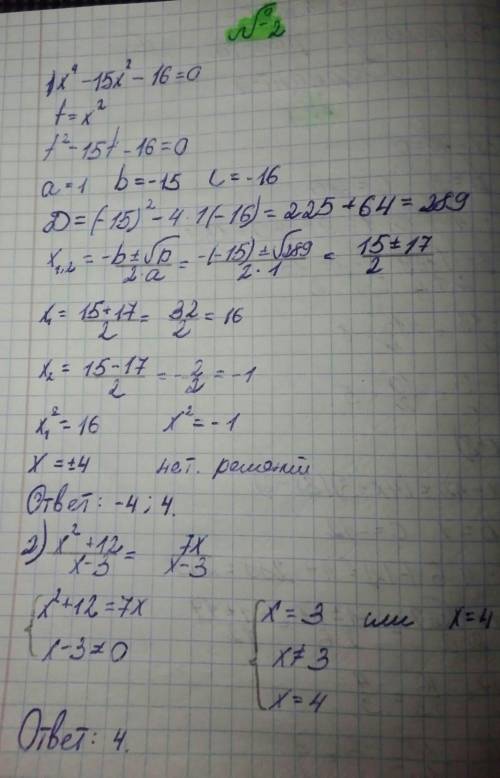 №2
1) x⁴ - 15x² - 16 = 0
t = x²
t² - 15t - 16 = 0
a = 1 b = -15 c = -16
D = (-15)² - 4·1(-16) = 225 + 64 = 289
x₁,₂ = (-b ± √D)/(2·a) = (-(-15) ± √289)/(2·1) = (15 ± 17)/2
x₁ = (15 + 17)/2 = 32/2 = 16
x₂ = (15 - 17)/2 = -2/2 = -1
x₁² = 16 x² = -1
x = ±4 нет. решений
Ответ: -4; 4.
2) (x² + 12)/(x - 3) = 7x/(x - 3)
{ x² + 12 = 7x { x = 3 или x = 4
x - 3 ≠ 0 x ≠ 3
x = 4
Ответ: 4.